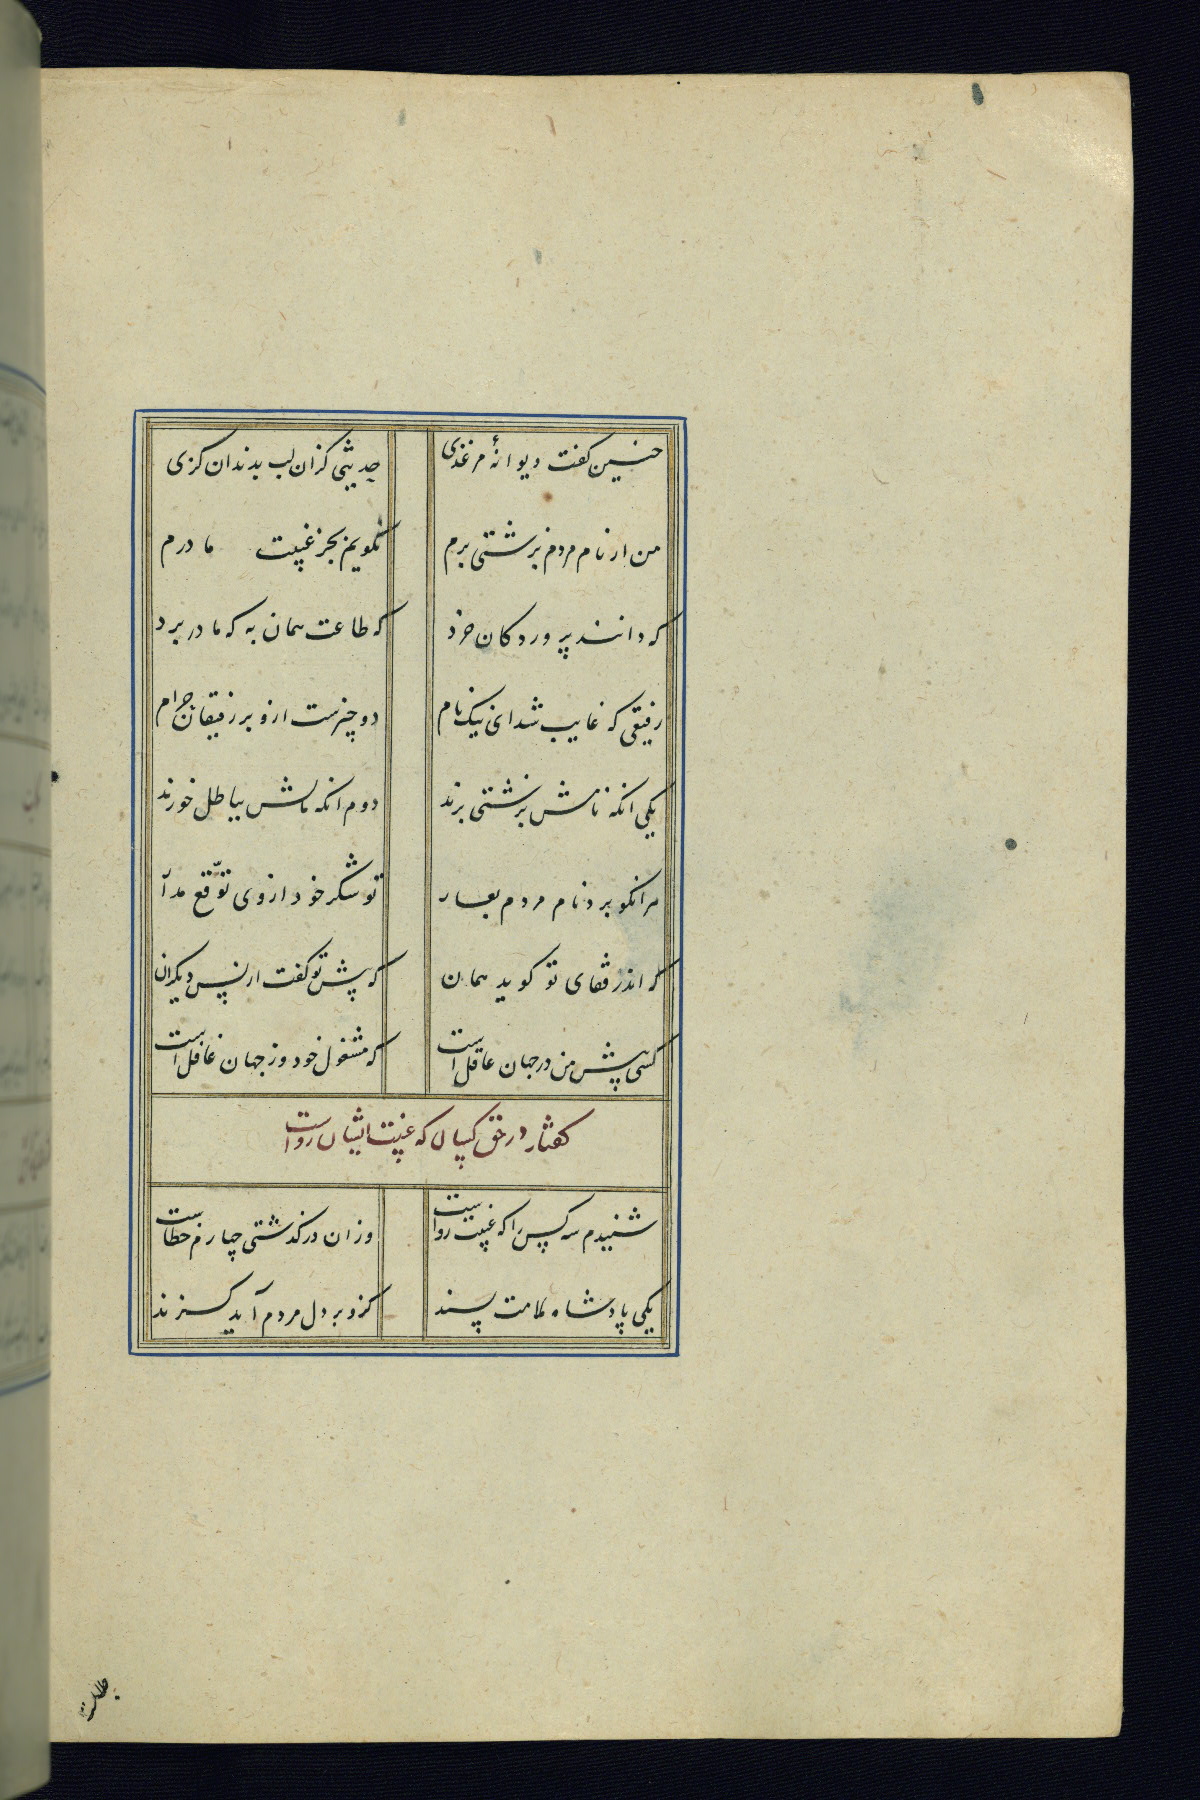 چنین کفت دیوانهٔ مرغذی حدیثی کزان لب بدندان کزی
من ار نام مردم بزشتی برم نکویم بجز غیبت مادرم
که دانند پروردکان خرد که طاعت همان به که مادر برد
رفیقی که غایب شد ای نیک نام دو چیزست ازو بر رفیقان حرام
یکی انکه نامش بزشتی برند دوم انکه مالش بباطل خورند
هر انکو برد نام مردم بعار تو شکر خود از وی توقّع مدار
که اندر قفای تو کوید همان که پیش تو کفت از پس دیکران
کسی پیش من در جهان عاقل است که مشغول خود وز جهان غافل است
کفتار در حق کسان که غیبت ایشان رواست
شنیدم سه کس را که غیبت رواست وزان درکذشتی چهارم خطاست
یکی پادشاه ملامت پسند کزو بر دل مردم آید کزند